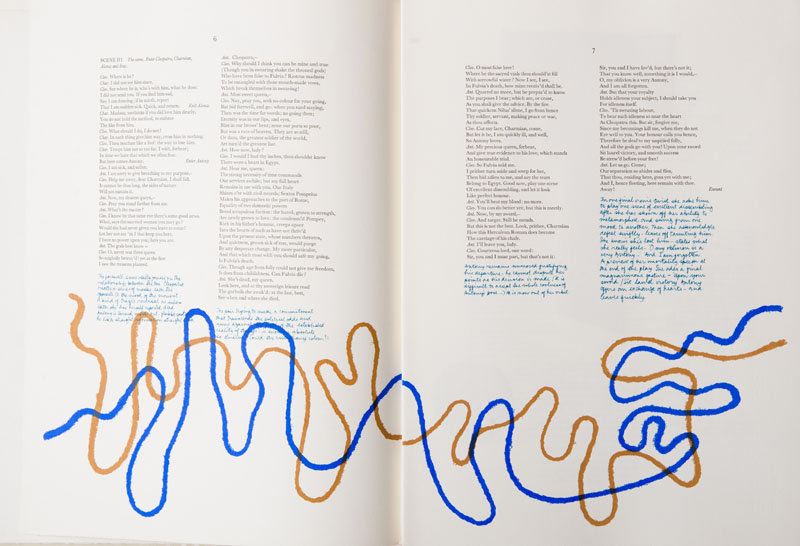 6
SCENE III The same. Enter Cleopatra, Charmian,
Alexas and Iras.
Cleo. Where is he?
Char. I did not see him since.
Cleo. See where he is, who's with him, what he does:
I did not send you. If you find him sad,
Say I am dancing; if in mirth, report
That I am sudden sick. Quick, and return. Exit Alexas
Char. Madam, methinks if you did love him dearly,
You do not hold the method, to enforce
The like from him.
Cleo. What should I do, I do not?
Char. In each thing give him way, cross him in nothing.
Cleo. Thou teachest like a fool: the way to lose him.
Char. Tempt him not so too far. I wish, forbear;
In time we hate that which we often fear.
But here comes Antony. Enter Antony
Cleo. I am sick, and sullen.
Ant. I am sorry to give breathing to my purpose,-
Cleo. Help me away, dear Charmian, I shall fall.
It cannot be thus long, the sides of nature
Will not sustain it.
Ant. Now, my dearest queen,-
Cleo. Pray you stand farther from me.
Ant. What's the matter?
Cleo. I know by that same eye there's some good news.
What, says the married woman you may go?
Would she had never given you leave to come!
Let her not say 'tis I that keep you here,
I have no power upon you; hers you are.
Ant. The gods best know-
Cleo. O, never was there queen
So mightily betray'd! yet at the first
I saw the treasons planted.
Ant. Cleopatra,-
Cleo. Why should I think you can be mine and true
(Though you in swearing shake the throned gods)
Who have been false to Fulvia? Riotous madness
To be entangled with those mouth-made vows,
Which break themselves in swearing!
Ant. Most sweet queen,-
Cleo. Nay, pray you, seek no colour for your going,
But bid farewell, and go: when you sued staying,
Then was the time for words; no going then;
Eternity was in our lips, and eyes,
Bliss in our brows' bent; none our parts so poor,
But was a race of heaven. They are so still,
Or thou, the greatest soldier of the world,
Art turn'd the greatest liar.
Ant. How now, lady?
Cleo. I would I had thy inches, thou shouldst know
There were a heart in Egypt.
Ant. Hear me, queen:
The strong necessity of time commands
Our services awhile; but my full heart
Remains in use with you. Our Italy
Shines o'er with civil swords; Sextus Pompeius
Makes his approaches to the port of Rome,
Equality of two domestic powers
Breed scrupulous faction: the hated, grown to strength,
Are newly grown to love: the condemn'd Pompey,
Rich in his father's honour, creeps apace
Into the hearts of such as have not thriv'd
Upon the present state, whose numbers threaten,
And quietness, grown sick of rest, would purge
By any desperate change. My more particular,
And that which most with you should safe my going,
Is Fulvia's death.
Cleo. Though age from folly could not give me freedom,
It does from childishness. Can Fulvia die?
Ant. She's dead, my queen.
Look here, and at thy sovereign leisure read
The garboils she awak'd: at the last, best,
See when and where she died.
7
Cleo. O most false love!
Where be the sacred vials thou shouldst fill
With sorrowful water? Now I see, I see,
In Fulvia's death, how mine receiv'd shall be.
Ant. Quarrel no more, but be prepar'd to know
The purposes I bear; which are, or cease,
As you shall give the advice. By the fire
That quickens Nilus' slime, I go from hence
Thy soldier, servant, making peace or war,
As thou affects.
Cleo. Cut my lace, Charmian, come,
But let it be, I am quickly ill, and well,
So Antony loves.
Ant. My precious queen, forbear,
And give true evidence to his love, which stands
An honourable trial.
Cleo. So Fulvia told me.
I prithee turn aside and weep for her,
Then bid adieu to me, and say the tears
Belong to Egypt. Good now, play one scene
Of excellent dissembling, and let it look
Like perfect honour.
Ant. You'll heat my blood: no more.
Cleo. You can do better yet; but this is meetly.
Ant. Now, by my sword,-
Cleo. And target. Still he mends.
But this is not the best. Look, prithee, Charmian
How this Herculean Roman does become
The carriage of his chafe.
Ant. I'll leave you, lady.
Cleo. Courteous lord, one word:
Sir, you and I must part, but that's not it:
Sir, you and I have lov'd, but there's not it;
That you know well, something it is I would,-
O, my oblivion is a very Antony,
And I am all forgotten.
Ant. But that your royalty
Holds idleness your subject, I should take you
For idleness itself.
Cleo. 'Tis sweating labour,
To bear such idleness so near the heart
As Cleopatra this. But sir, forgive me,
Since my becomings kill me, when they do not
Eye well to you. Your honour calls you hence,
Therefore be deaf to my unpitied folly,
And all the gods go with you! Upon your sword
Sit laurel victory, and smooth success
Be strew'd before your feet!
Ant. Let us go. Come;
Our separation so abides and flies,
That thou, residing here, goes yet with me;
And I, hence fleeting, here remain with thee.
Away! Exeunt